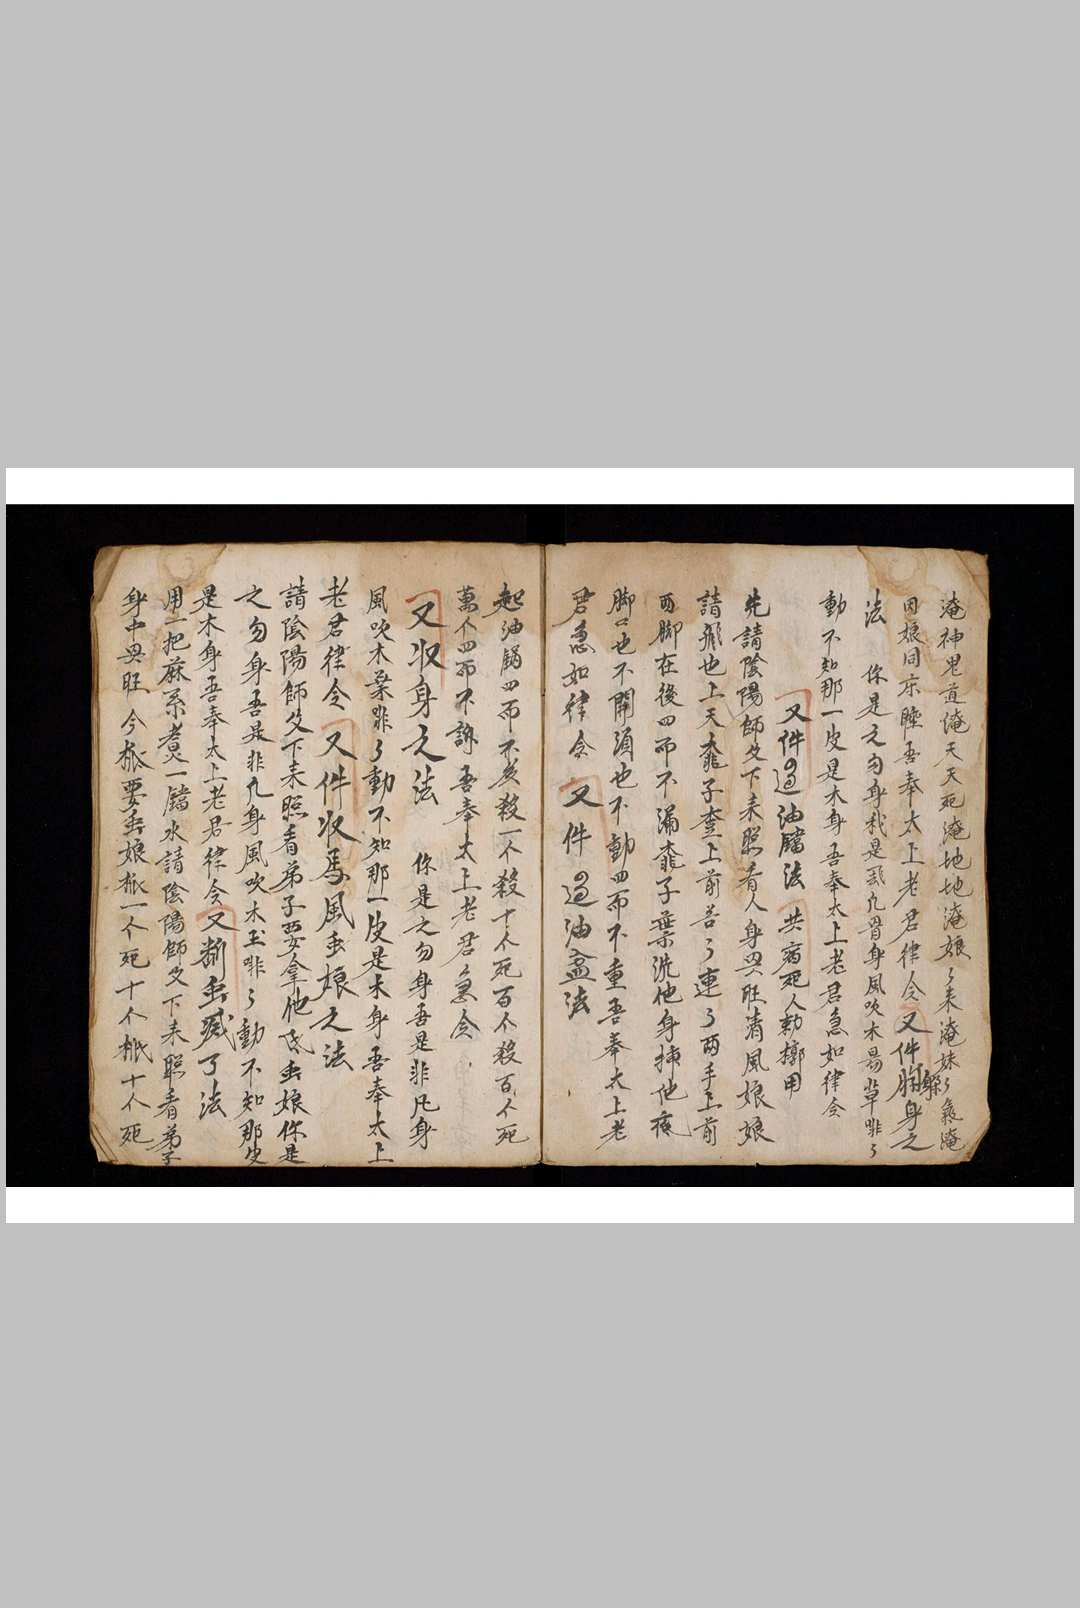 淹神鬼道淹天天死淹地地淹娘々来淹妹々氣淹
因娘同床睡吾奉太上老君律令又件解胎身之
法 你是之勿身我是非凢骨身風吹木葛草啡々
動不知那一皮是木身吾奉太上老君急如律令
又件過油鐺法 共病死人勅擲用
先請陰陽師父下来照看人身興旺清風娘娘
請飛也上天 子 上前若々連々両手上前
两脚在後四而不漏 子葉洗他身 他疼
脚口也不開須也不動四而不重吾奉太上老
君急如律令 又件 過油盆法
起油鍋四而不炎殺一个殺十个死百个殺百个死
萬个四而不謝 吾奉太上老君急令
又收身之法 你是之勿身吾是非凡身
風吹木葉啡々動不知那一皮是木身吾奉太上
老君律令 又件收馬風虫娘之法
請陰陽師父下来照看弟子要拿他 虫娘你是
之勿身吾是非凢身風吹木玉啡々動不知那皮
是木身吾奉太上老君律令又斷虫滅了法
用一把蔴系煮一鐺水請陰陽師父下来照看弟子
身中興旺 今 要虫娘 一个死十个 十个死